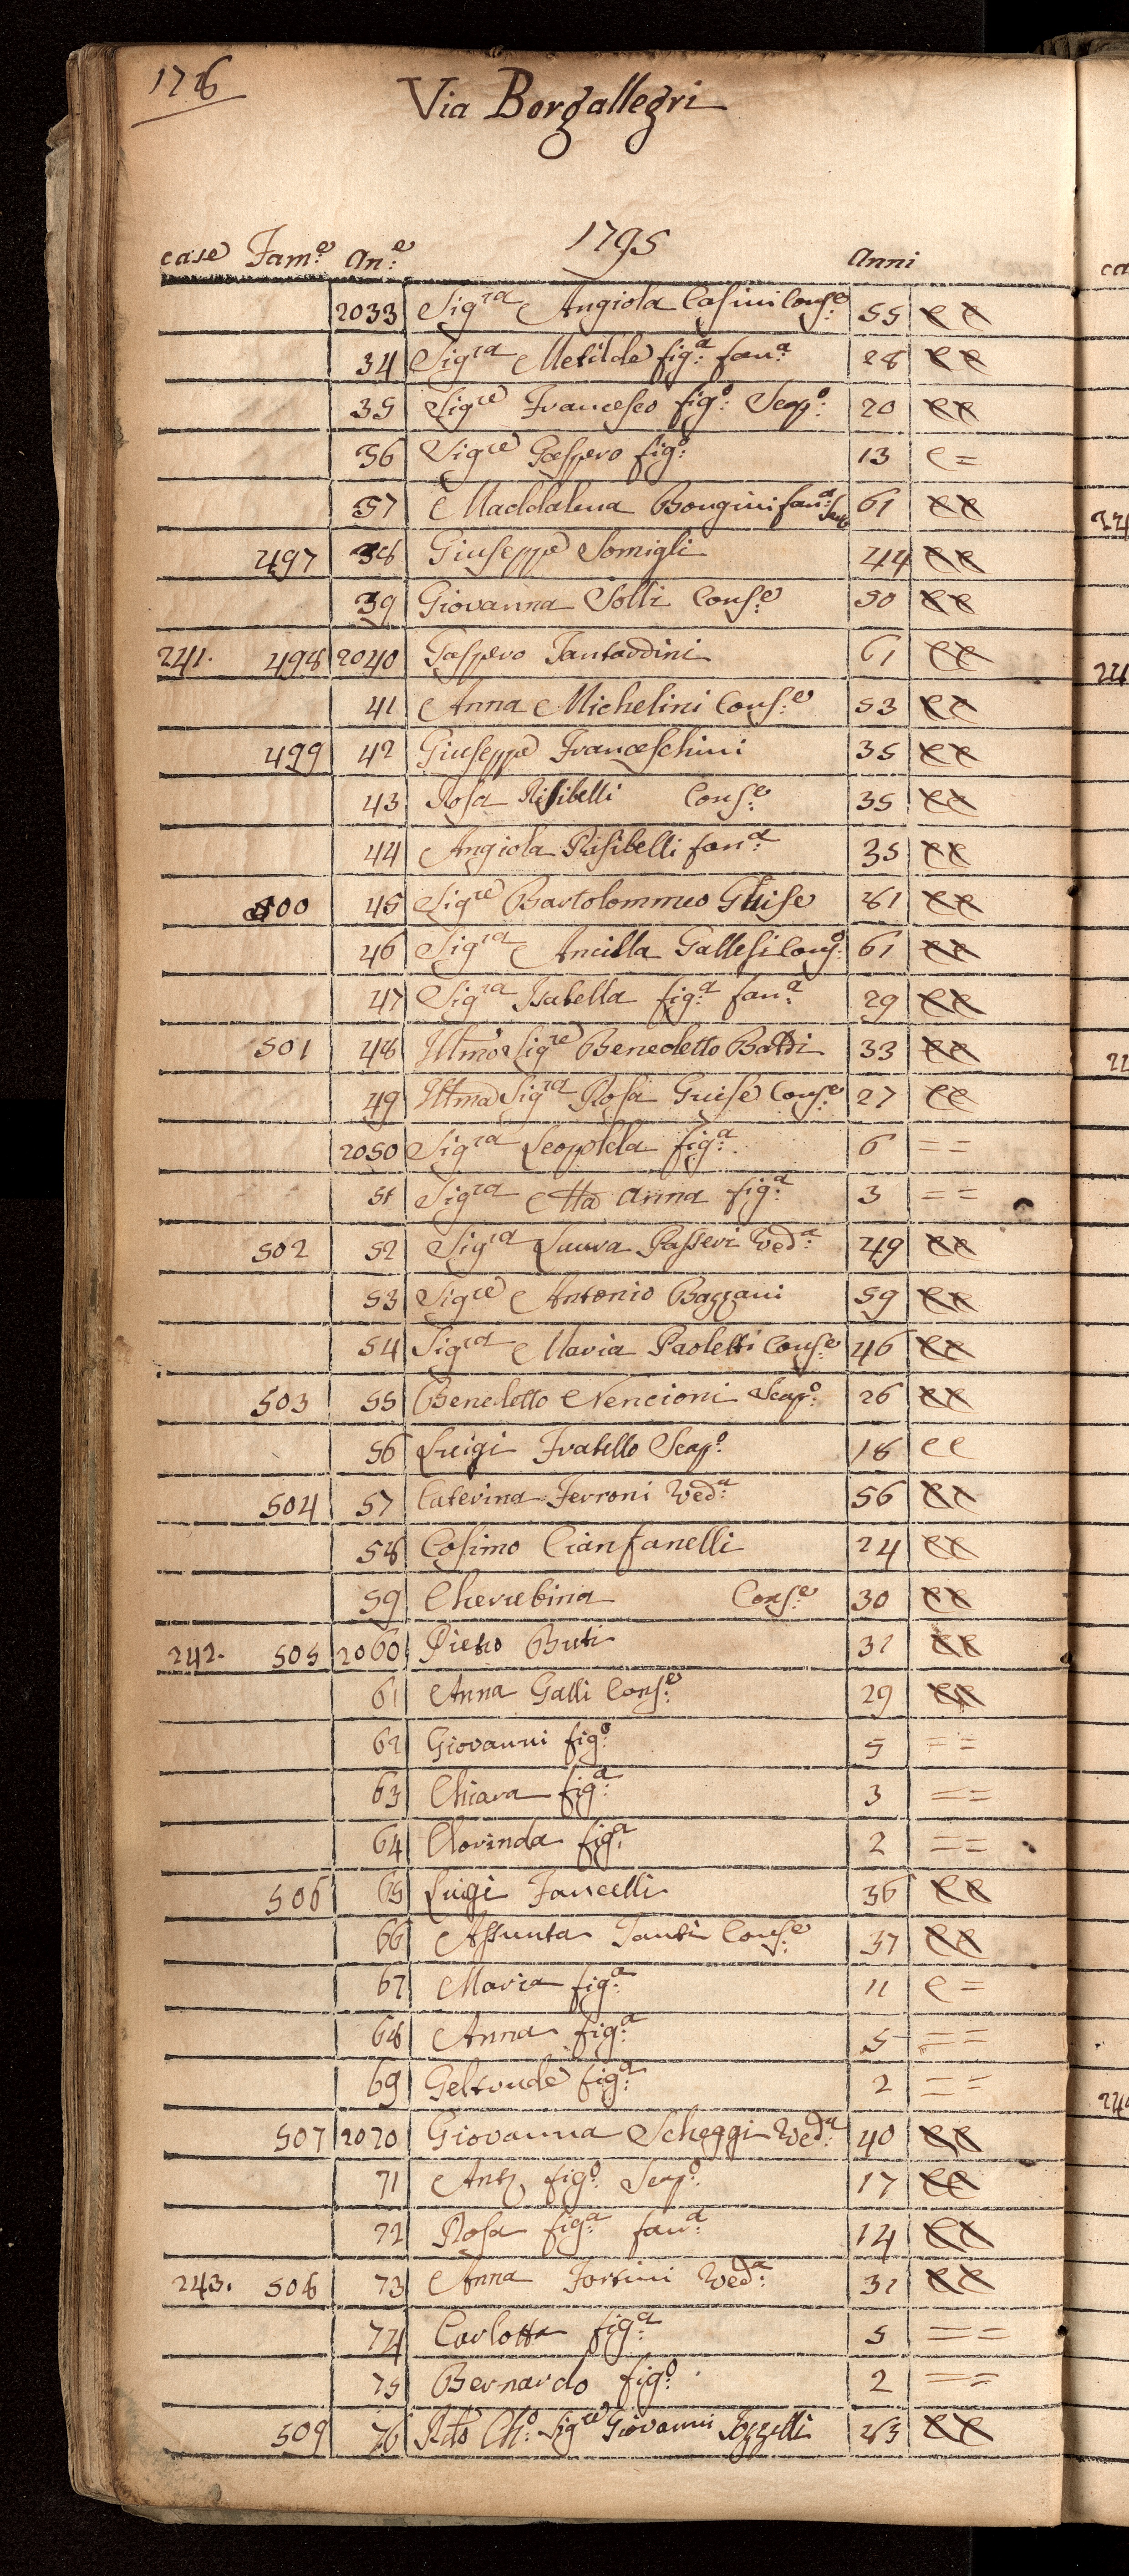 176
Via Borgallegri
1795
case Fam.e An.e Anni
2033 Sig.ra Angiola Casini Cons.e 55
34 Sig.ra Metilde fig.a fan.a 28
35 Sig.re Francesco fig.o Scap.o 20
36 Sig.re Gaspero fig.o 13 c =
37 Maddalena Bongini fan.a Ser 61
497 38 Giuseppe Somigli 44
39 Giovanna Solli Cons.e 50
241. 498 2040 Gaspero Tantardini 61
41 Anna Michelini Cons.e 53
499 42 Giuseppe Franceschini 35
43 Rosa Risibelli Cons.e 35
44 Angiola Risibelli fan.a 35
500 45 Sig.re Bartolommeo Guise 81
46 Sig.ra Ancilla Gallesi Cons.e 61
47 Sig.ra Isabella fig.a fan.a 29
501 48 Illmo Sig.re Benedetto Batti 33
49 Illma Sig.ra Rosa Guise Cons.e 27 cc
2050 Sig.ra Leopolda fig.a 6 = =
51 Sig.ra Ma Anna fig.a 3 = =
502 52 Sig.ra Laura Passeri Ved.a 49
53 Sig.re Antonio Bazzani 59
54 Sig.ra Maria Paoletti Cons.e 46
503 55 Benedetto Nencioni Scap.o 26
56 Luigi Fratello Scap.o 18 cc
504 57 Caterina Ferroni Ved.a 56
58 Cosimo Cianfanelli 24
59 Cherubina Cons.e 30
242. 505 2060 Pietro Buti 31
61 Anna Galli Cons.e 29
62 Giovanni fig.o 5 = =
63 Chiara fig.a 3 = =
64 Clorinda fig.a 2 = =
506 65 Luigi Fancelli 36
66 Assunta Santi Cons.e 37
67 Maria fig.a 11 c =
68 Anna fig.a 5 = =
69 Geltrude fig.a 2 = =
507 2070 Giovanna Scheggi Ved.a 40
71 Ant.o fig.o Scap.o 17
72 Rosa fig.a fan.a 14
243. 508 73 Anna Fortini Ved.a 31
74 Carlotta fig.a 5 = =
75 Bernardo fig.o 2 = =
509 76 Rdo Ch.o Sig.re Giovanni Pozzelli 23